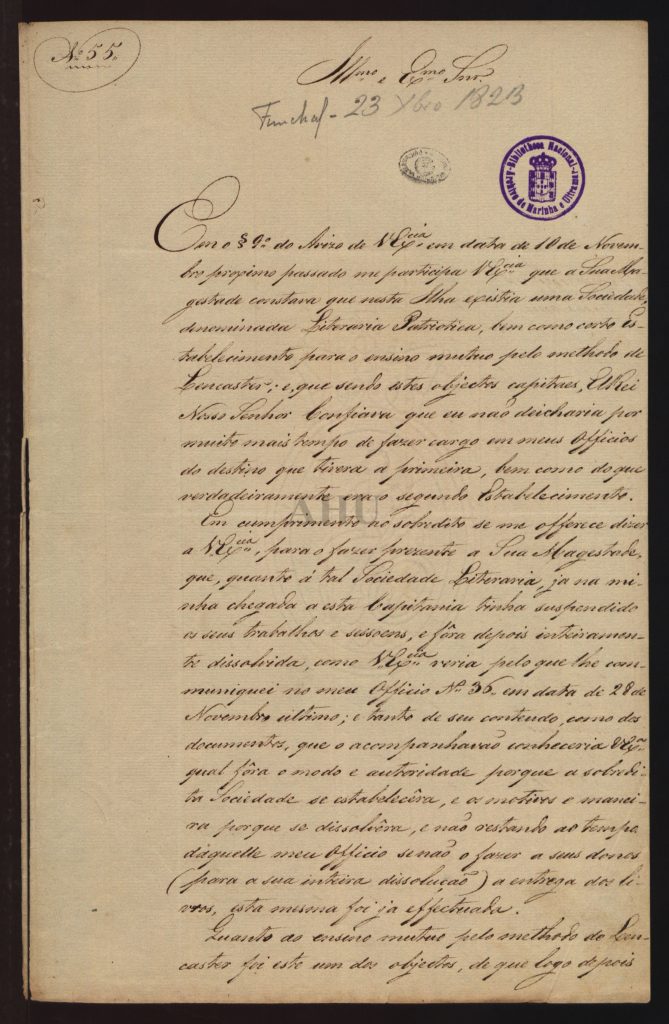 Nº 55.
Illmo. e Exmo. Snr.
Funchal - 23 Xbro 1823
Bibliotheca Nacional
Archivo de Marinha e Ultramar
Em o § 9º do Avizo de V.Excia. em data de 10 de Novem-
bro proximo passado me participa V.Excia. que a Sua Ma-
gestade constava que nesta Ilha existia uma Sociedade,
denominada Literaria Patriotica, bem como certo Es-
tabelecimento para o ensino mutuo pelo methodo de
Lencaster; e, que sendo estes objectos capitaes, ElRei
Nosso Senhor Confiava que eu não deicharia por
muito mais tempo de fazer cargo em meus Officios
do destino que tivera a primeira, bem como do que
verdadeiramente era o segundo Estabelecimento.
AHU
Em cumprimento ao sobredito se me offerece dizer
a V.Excia., para o fazer prezente a Sua Magestade,
que, quanto á tal Sociedade Literaria, ja na mi-
nha chegada a esta Capitania tinha suspendido
os seus trabalhos e sessoens, e fôra depois inteiramen-
te dissolvida, como V.Excia. veria pelo que lhe com-
muniquei no meu Officio Nº 36. em data de 28 de
Novembro ultimo; e tanto de seu contendo, como dos
documentos, que o acompanhavão conheceria V.Exa.
qual fôra o modo e autoridade porque a sobredi-
ta Sociedade se estabelecêra, e os motivos e manei-
ra porque se dissolvêra, e não restando ao tempo
daquelle meu Officio senão o fazer a seus donos
(para a sua inteira dissolução) a entrega dos li-
vros, esta mesma foi ja effectuada.
Quanto ao ensino mutuo pelo methodo de Len-
caster foi este um dos objectos, de que logo depois